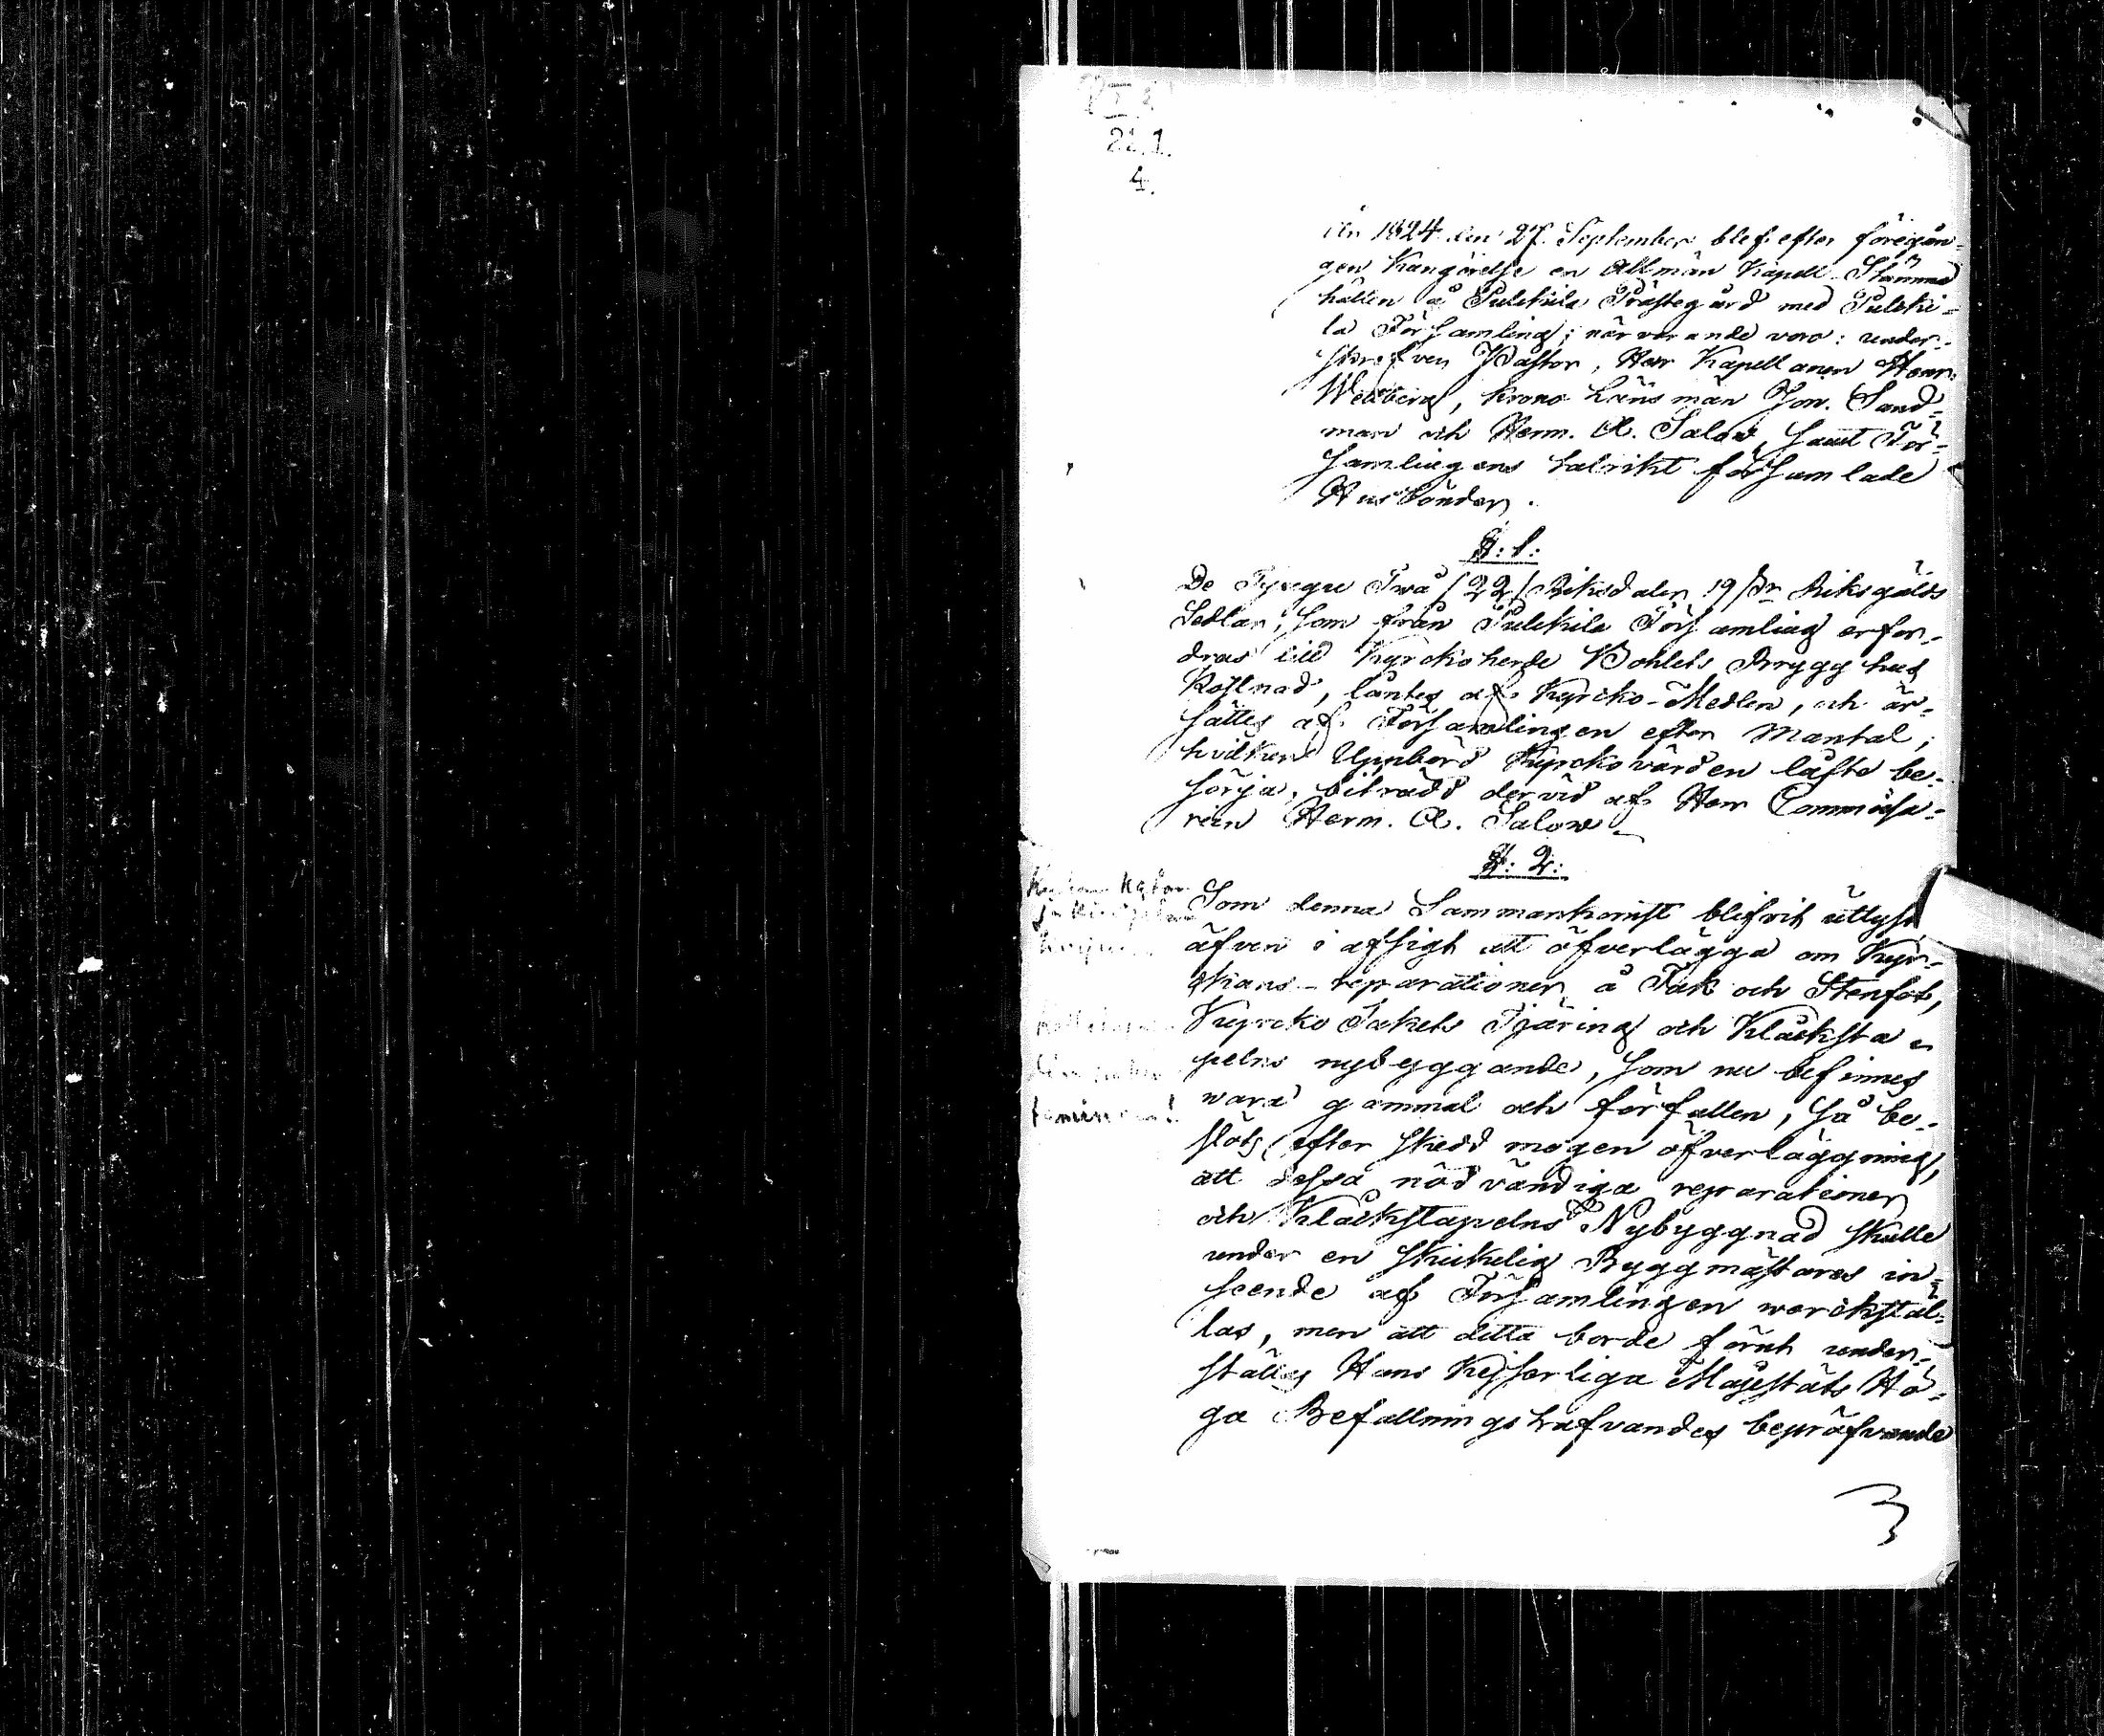 22.1.
4.
År 1824 den 27 September blef efter föregån-
gen Kungörelse en Allmän Kapell-Stämma
hållen å Pulckila Prästegård med Pulcki-
la Församling; närvarande voro: under-
skrefven Pastor, Herr Kapellanen Henr.
Wegberg, Krono Länsman Jon. Sand-
man och Herm. A. Salow, samt För-
samlingens talrikt församlade
Husbönder.
§: 1:
De Tjugu Två /22/ Riksdaler 19 Riksgälds
Sedlar, som från Pulckila Församling erfor-
dras till Kyrckoherde Bohlets Brygghus
Kostnad, låntes af Kyrcko-Medlen, och är-
sättes af Församlingen efter Mantal;
hvilken Uppbörd Kyrckovärden låfte be-
sörja, biträdd dervid af Herr Commissa-
rien Herm. A. Salow
§: 2:
Som denna Sammankomst blifvit utlyst
äfven i afsigt att öfverlägga om Kyr-
ckans reparationer å Tak och Stenfot,
Kyrcko Takets Tjäring och Klåcksta-
pelns nybyggande, som nu befinnes
wara gammal och förfallen, så be-
slöts efter skedd mogen öfverläggning,
att dessa nödvändiga reparationer
och Klåckstapelns Nybyggnad skulle
under en skickelig Byggmästares in-
seende af Församlingen werckstäl-
las, men att detta borde förut under-
ställas Hans Kejserliga Majestäts Hö-
ga Befallningshafvandes bepröfvande